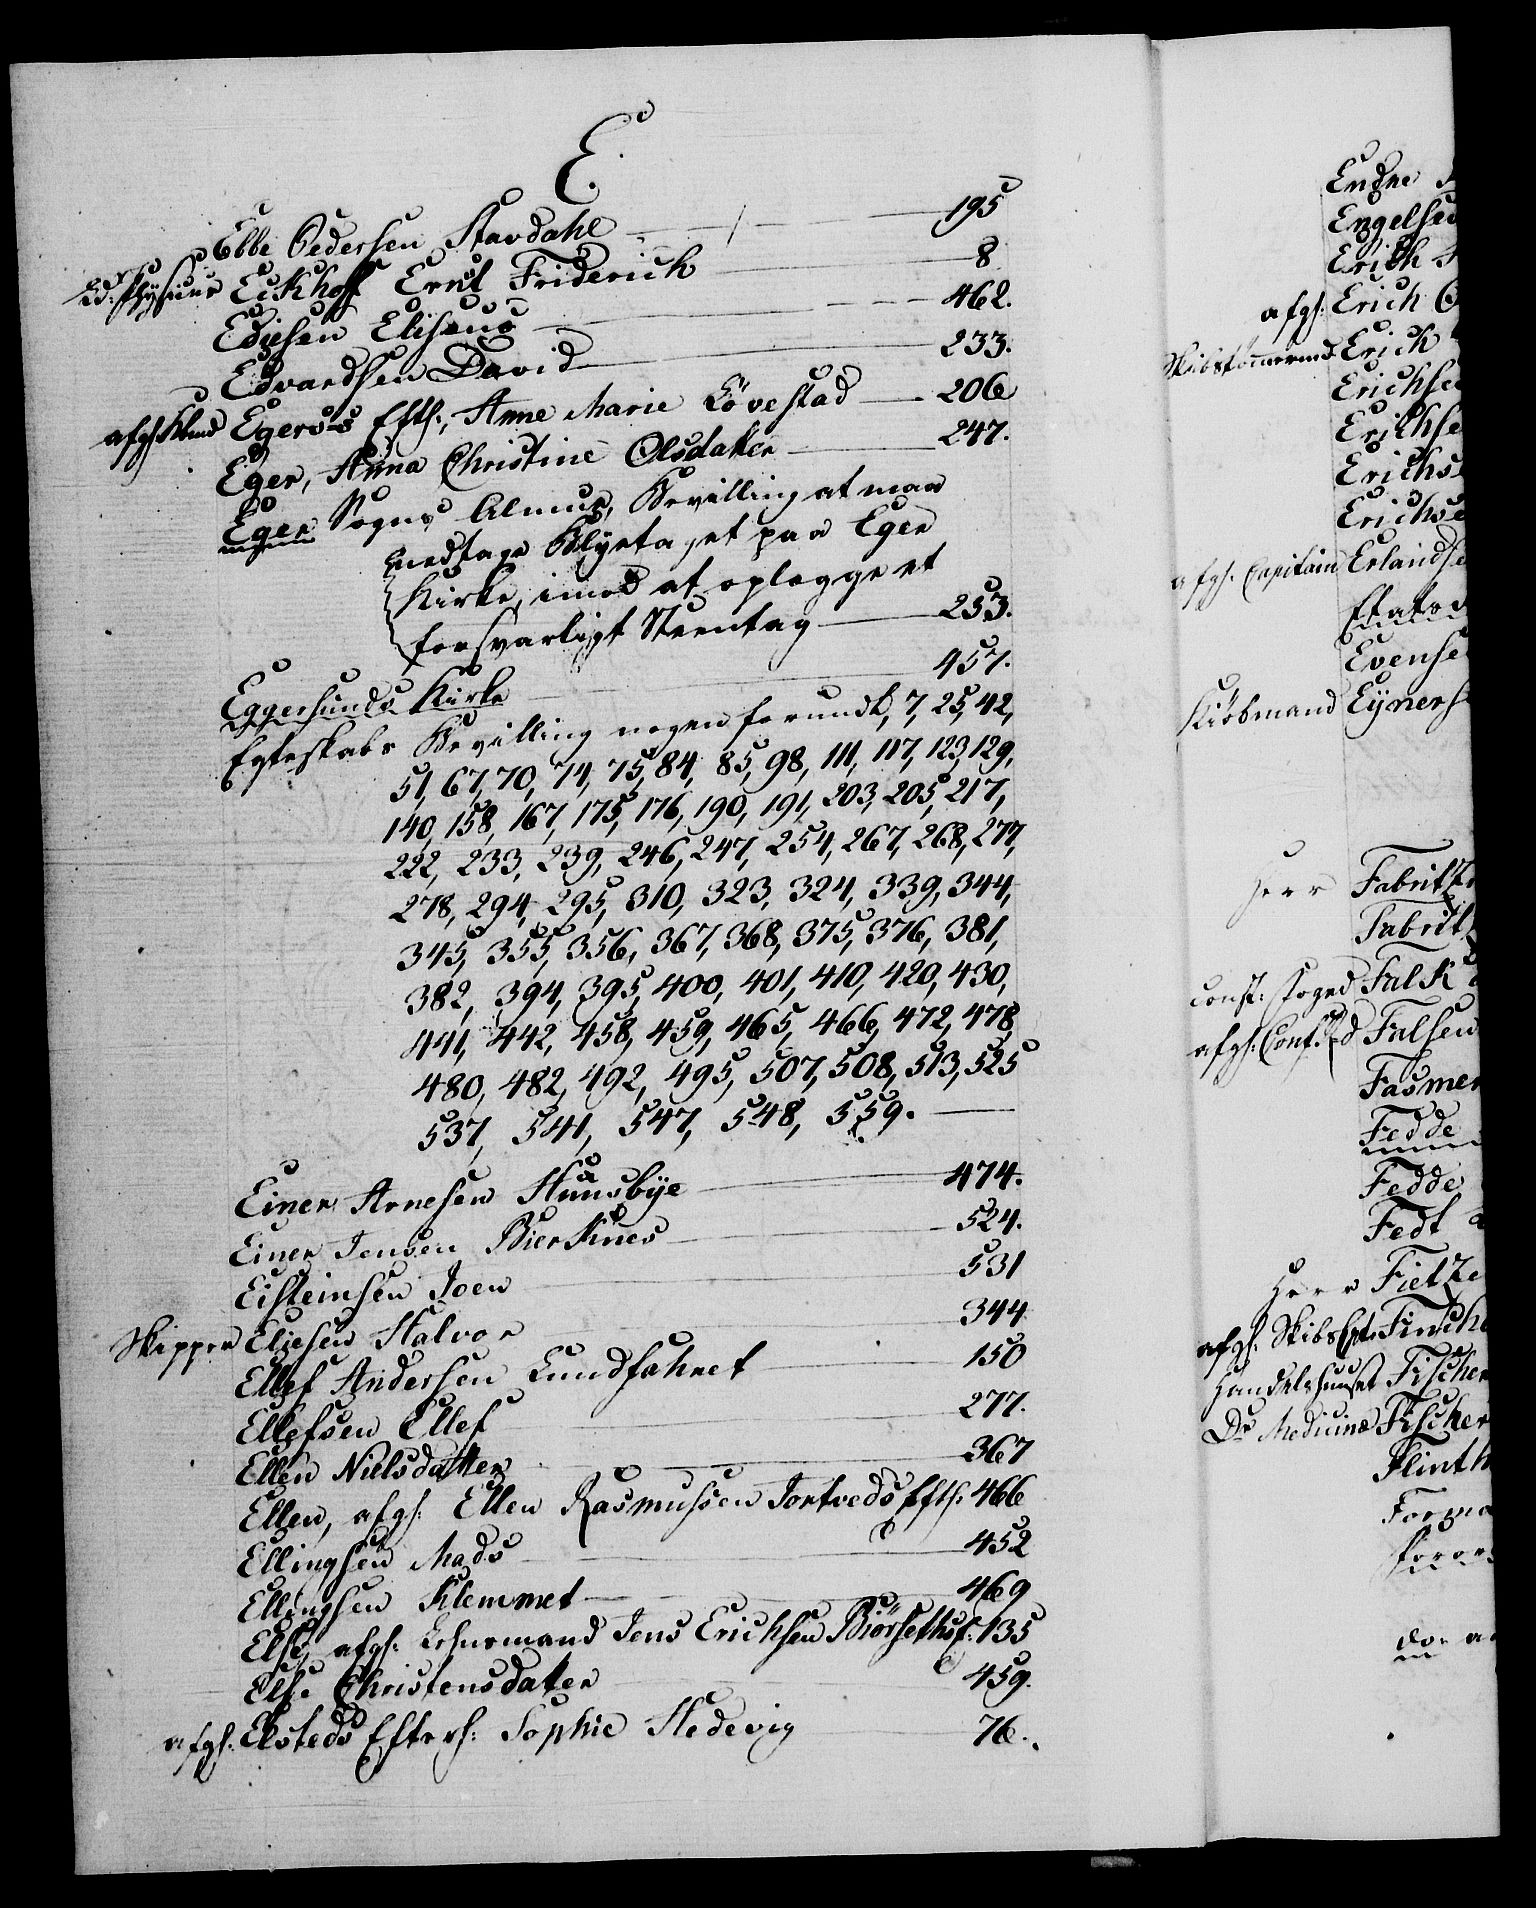 E.
Ebbe Pedersen Stavdahl 195
Ld: Physicus Eickhoff Ernst Friderich 8
Ediesen Elisæus 462.
Edvardsen David 233.
afg: Kbmd Egers Efth:, Anne Marie Lövestad 206
Eger, Anna Christine Olsdatter 247.
Eger Sogns Almue, Bevilling at maa
nedtage Blyetaget paa Eger
Kirke, imod at oplegge et
forsvarligt Steentag 253.
Eggersunds Kirke 457.
Egteskabs Bevilling nogen forundt, 7, 25, 42,
51, 67, 70, 74, 75, 84, 85, 98, 111, 117, 123, 129,
140, 158, 167, 175, 176, 190, 191, 203, 205, 217,
222, 233, 239, 246, 247, 254, 267, 268, 277,
278, 294, 295, 310, 323, 324, 339, 344,
345, 355, 356, 367, 368, 375, 376, 381,
382, 394, 395, 400, 401, 410, 420, 430,
441, 442, 458, 459, 465, 466, 472, 478,
480, 482, 492, 495, 507, 508, 513, 525
537, 541, 547, 548, 559.
Einer Arnesen Hunsbye 474.
Einer Jensen Bierknes 524.
Eisteinsen Joen 531
Skipper Eliesen Halvor 344
Ellef Andersen Lundfahret 150
Ellefsen Ellef 277.
Ellen Nielsdatter 367
Ellen, afg: Ellen Rasmussen Tortveds Efth: 466
Ellingsen Mads 452
Ellingsen Klemmet 469
Else, afg: Lehnsmand Jens Erichsen Biörseths f: 135
Else Christensdatter 459.
afg: Elsteds Efterl: Sophie Hedevig 76.
Endre
Engelsen
Erich
afg: Erich
Skibstömmermd Erich
Erichse
Erichse
Erichse
Erichse
afg: Capitain Erlandse
Etats
Evense
Kiöbmand Eyners
Herr Fabritz
Fabrit
const: foged Falk
afg: Conf: Rd Falsen
Fasmer
Fedde
Fedde
Fedt
Herr Fietze
afg: Skibs Cpt: Finch
Handelshuuset Fischer
Dr Medicinæ Fischer
Flinth
Forma
Foror
do: a